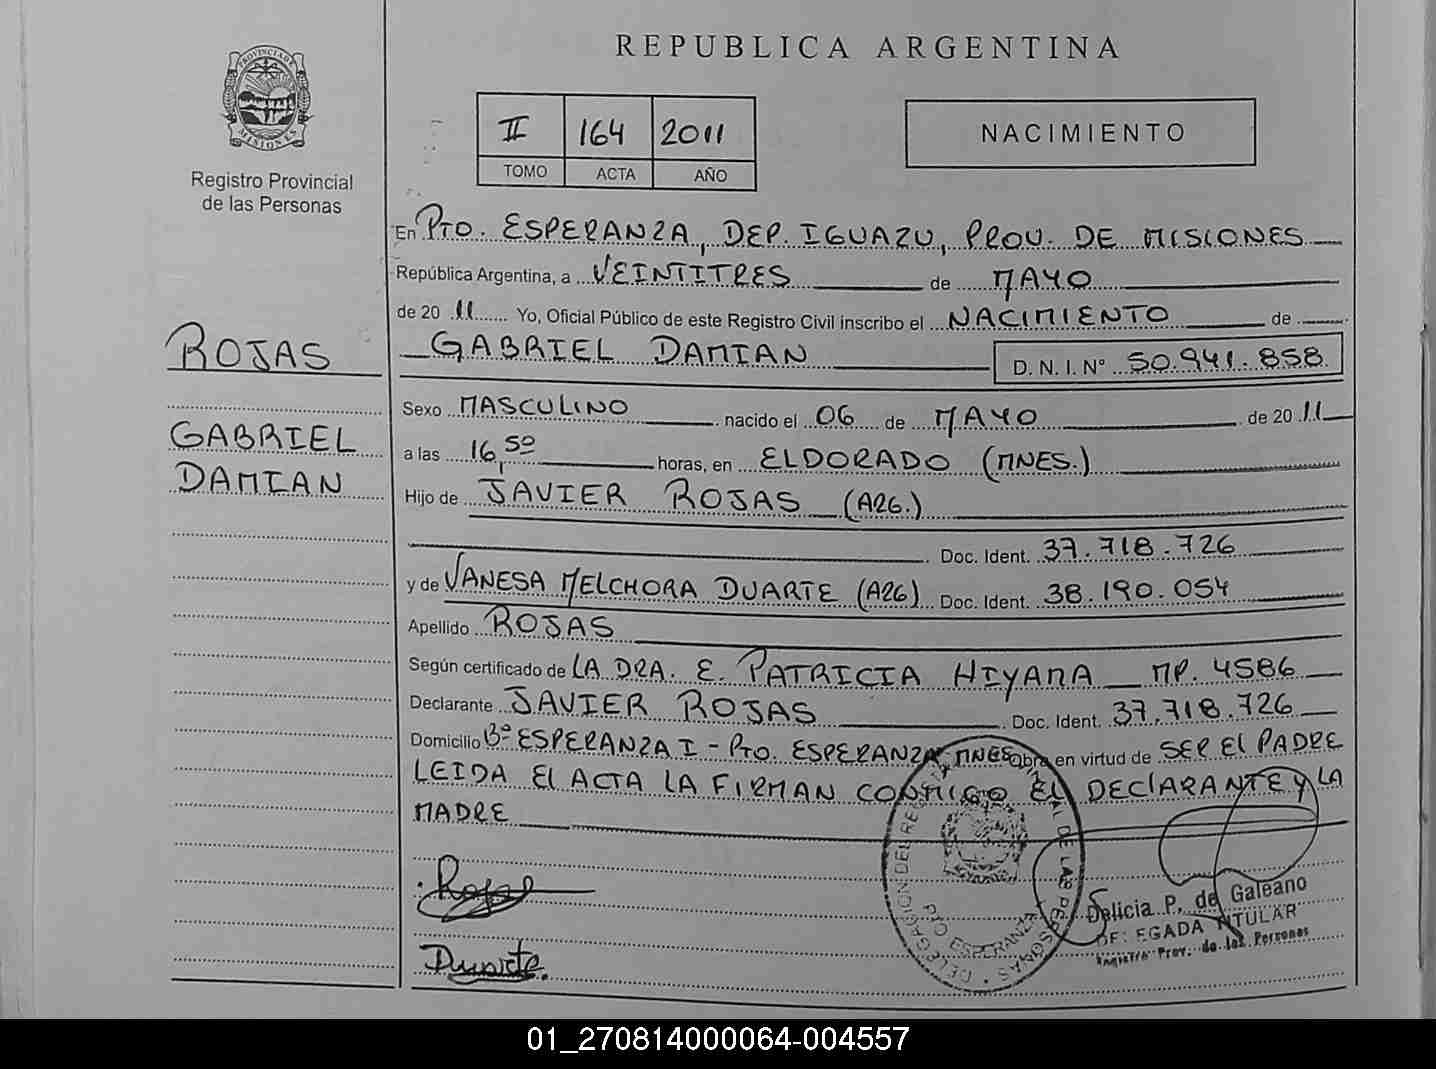 REPUBLICA ARGENTINA
PROVINCIA DE MISIONES
Registro Provincial
de las Personas
II 164 2011
TOMO ACTA AÑO
NACIMIENTO
ROJAS
GABRIEL
DAMIAN
En PTO. ESPERANZA, DEP. IGUAZU, PROV. DE MISIONES
República Argentina, a VEINTITRES de MAYO
de 20 11 Yo, Oficial Público de este Registro Civil inscribo el NACIMIENTO de
GABRIEL DAMIAN D. N. I. Nº 50.941.858
Sexo MASCULINO nacido el 06 de MAYO de 20 11
a las 16,50 horas, en ELDORADO (MNES.)
Hijo de JAVIER ROJAS (ARG.)
Doc. Ident. 37.718.726
y de VANESA MELCHORA DUARTE (ARG) Doc. Ident. 38.190.054
Apellido ROJAS
Según certificado de LA DRA. E. PATRICIA HIYAMA MP. 4586
Declarante JAVIER ROJAS Doc. Ident. 37.718.726
Domicilio Bº ESPERANZA I - PTO. ESPERANZA MNES Obra en virtud de SER El PADRE
LEIDA El ACTA LA FIRMAN CONMIGO EL DEClARANTE Y LA
MADRE
Rojas
Duarte.
DELEGACION DEL REGISTRO PROVINCIAL DE LAS PERSONAS
PTO ESPERANZA
Delicia P. de Galeano
DELEGADA TITULAR
Registro Prov. de las Personas
01_270814000064-004557